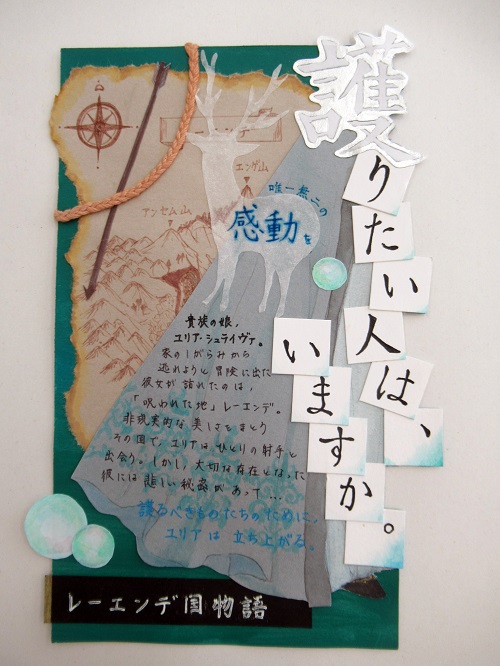 護りたい人は、
いますか。
レーエンデ
エンゲ山
アンセム山
唯一無二の
感動を
貴族の娘、
ユリア・シュライヴァ。
家のしがらみから
逃れようと冒険に出た
彼女が訪れたのは、
「呪われた地」レーエンデ。
非現実的な美しさをまとう
その国で、ユリアはひとりの射手と
出会う。しかし、大切な存在となった
彼には悲しい秘密があって…
護るべきものたちのために、
ユリアは立ち上がる。
レーエンデ国物語